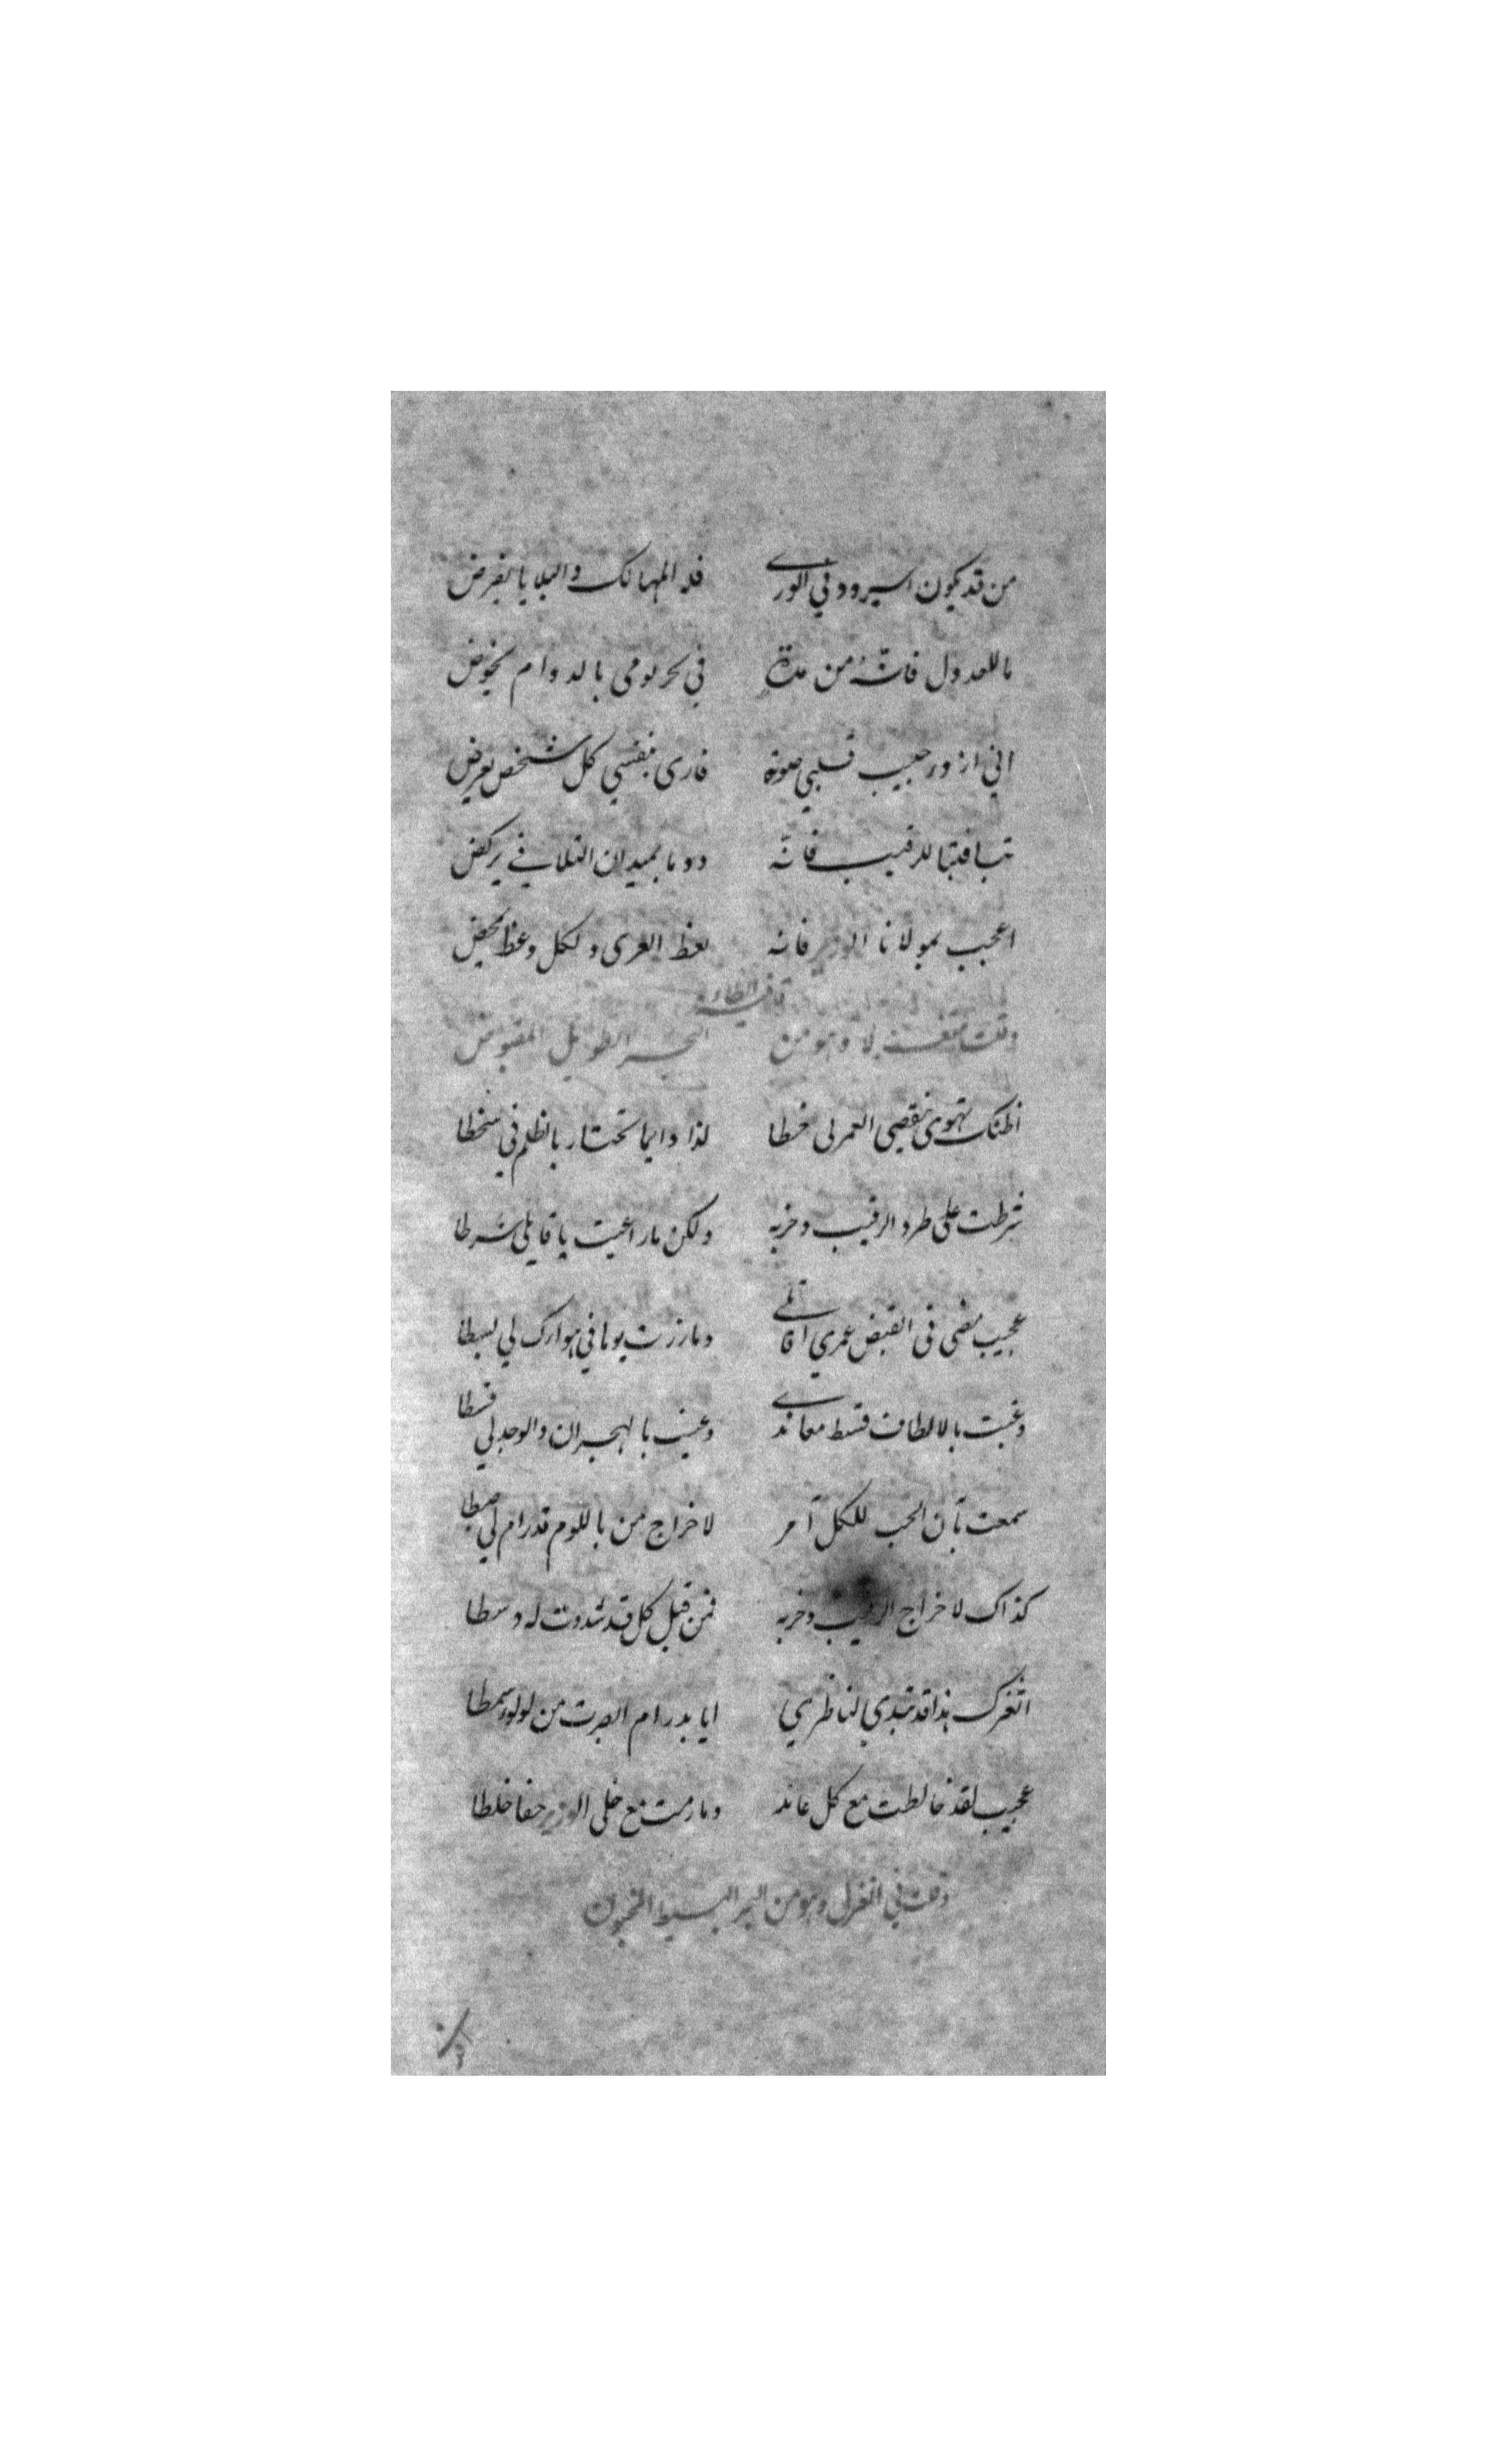 من قد يكون اسير ود في الورى فله المهالك والبلايا تفرض
ما للعدول فانه من مدة في بحر لومي بالدوام يخوض
اني ازور حبيب قلبي صونة فارى بنفسي كل شخص يعرض
تبا فتبا للرقيب فانه دوما بميدان التلافي يركض
اعجب بمولانا الوزير فانه لعظ الغرى ولكل وعظ يحض
قافية الطاء
وقلت متغزلا وهو من البحر الطويل المقبوض
اظنك تهوى نقصي العمر لي خطا لذا دايما تختار بالظلم في سخطا
شرطت على طرد الرقيب وخربه ولكن ما راعيت يا قاتلي شرطا
عجيب مضى في القبض عمري اقاتلي وما زرت يوما في هواك لي بسطا
وعينت بالالطاف قسط معاندي وعينت بالهجران والوجد لي قسطا
سمعت بأن الحب للكل آمر لاخراج من باللوم قد رام لي
كذاك لاخراج الرقيب وخربه فمن قبل كل قد شددت له وسطا
اثغرك هذا قد تبدي لناظري ايا بدر ام ابصرت من لولو سمطا
عجيب لقد خالطت مع كل عاند وما رمت مع خلى الوزير حقا خلطا
وقلت في الغزل وهو من البحر البسيط المخبون